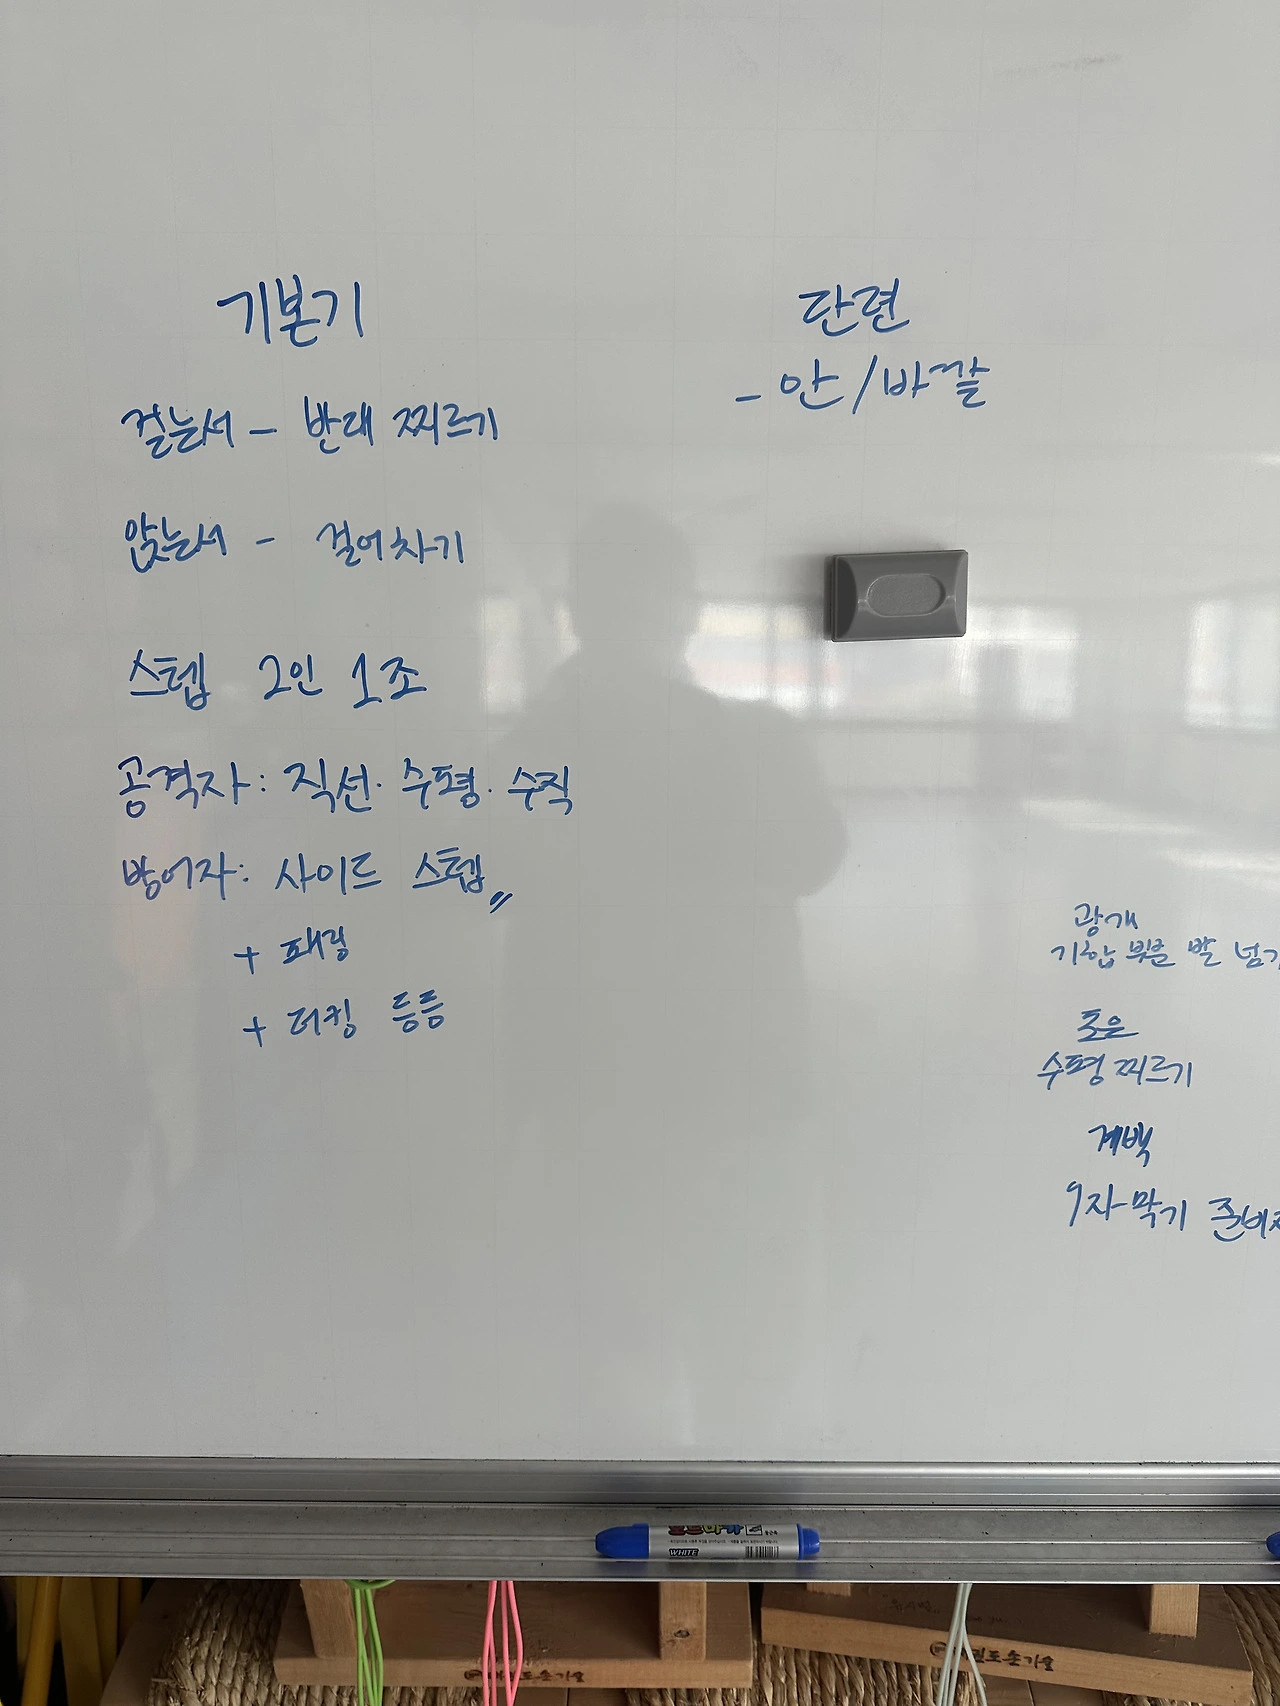 기본기
걷는서 - 반대 찌르기
앉는서 - 걸어차기
스텝 2인 1조
공격자: 직선·수평·수직
방어자: 사이드 스텝〃
+ 패링
+ 더킹 등등
단련
- 안/바깥
광개
기합 부분 발 넘기
포은
수평 찌르기
계백
9자막기 준비자
보드마카
WHITE
손기술